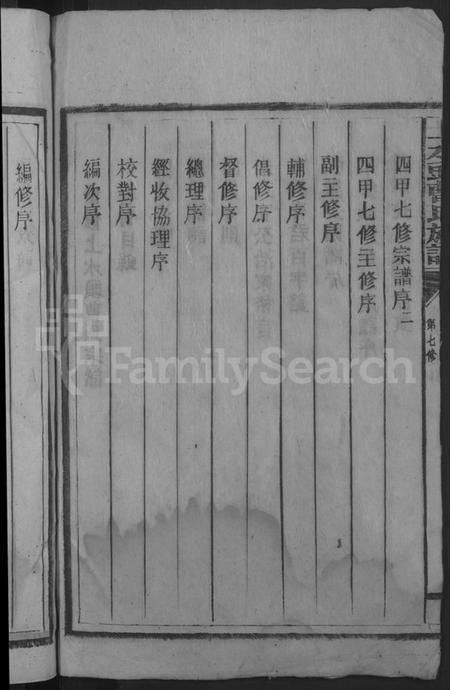 曹氏族譜
第七修
四甲七修宗譜序二
四甲七修主修序
副主修序
輔修序
倡修序
督修序
總理序
經收協理序
校對序
編次序
編修序
FamilySearch